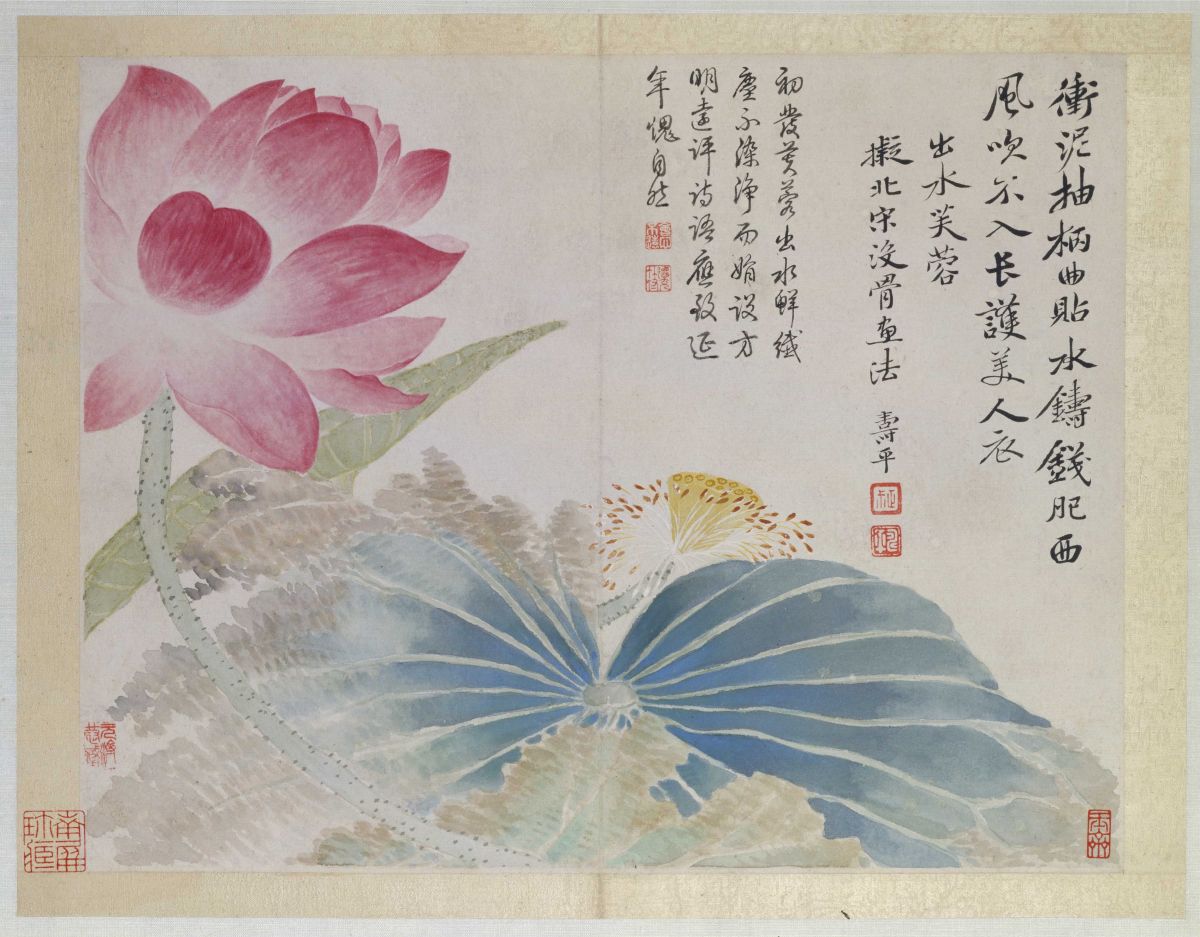 衝泥抽柄曲貼水鑄錢肥西
風吹不入長護美人衣
出水芙蓉
擬北宋沒骨画法 壽平
初發芙蓉出水鮮纖
塵不染淨而娟設方
明遠評詩語應致延
年愧自然